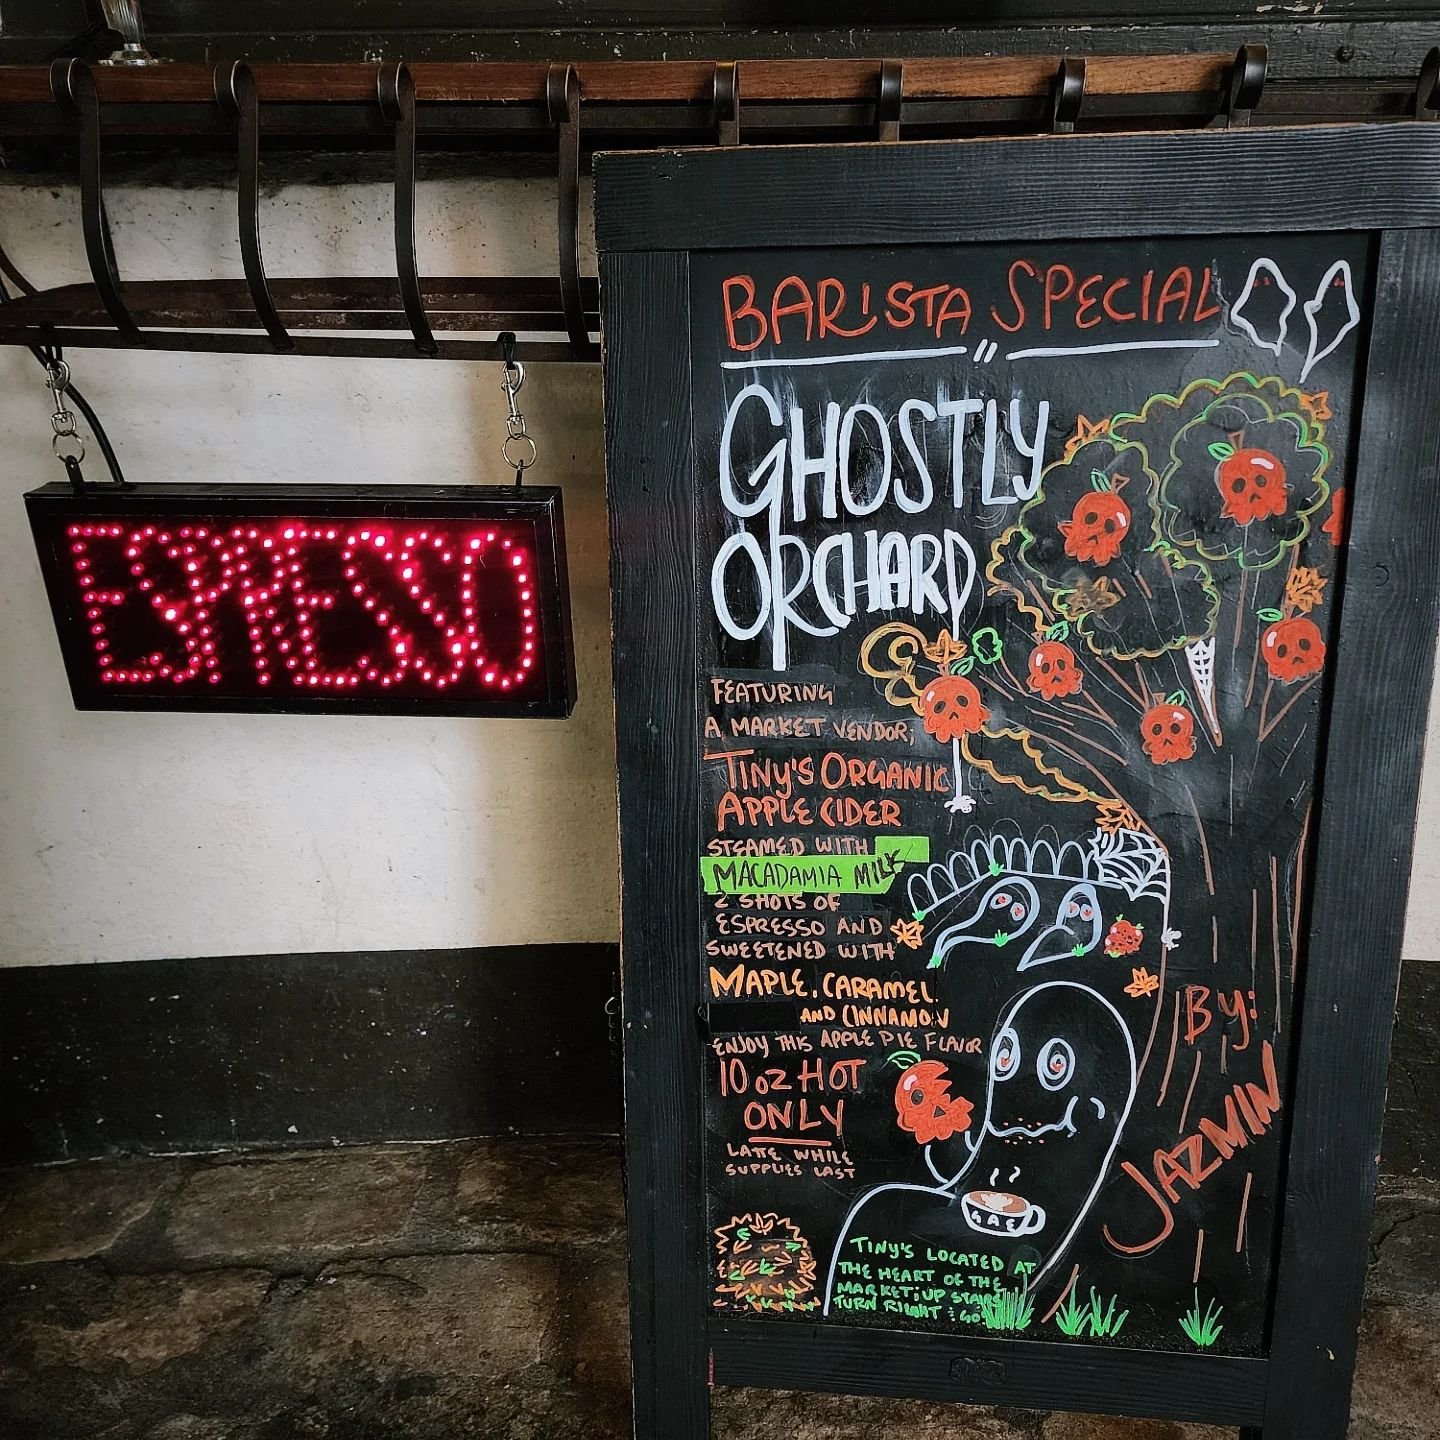 ESPRESSO
BARISTA SPECIAL
"
GHOSTLY
ORCHARD
FEATURING
A MARKET VENDOR;
TINY'S ORGANIC
APPLE CIDER
STEAMED WITH
MACADAMIA MILK
2 SHOTS OF
ESPRESSO AND
SWEETENED WITH
MAPLE, CARAMEL
AND CINNAMON
ENJOY THIS APPLE PIE FLAVOR
10 oz HOT
ONLY
LATTE WHILE
SUPPLIES LAST
BY:
JAZMIN
TINY'S LOCATED AT
THE HEART OF THE
MARKET; UP STAIRS
TURN RIGHT